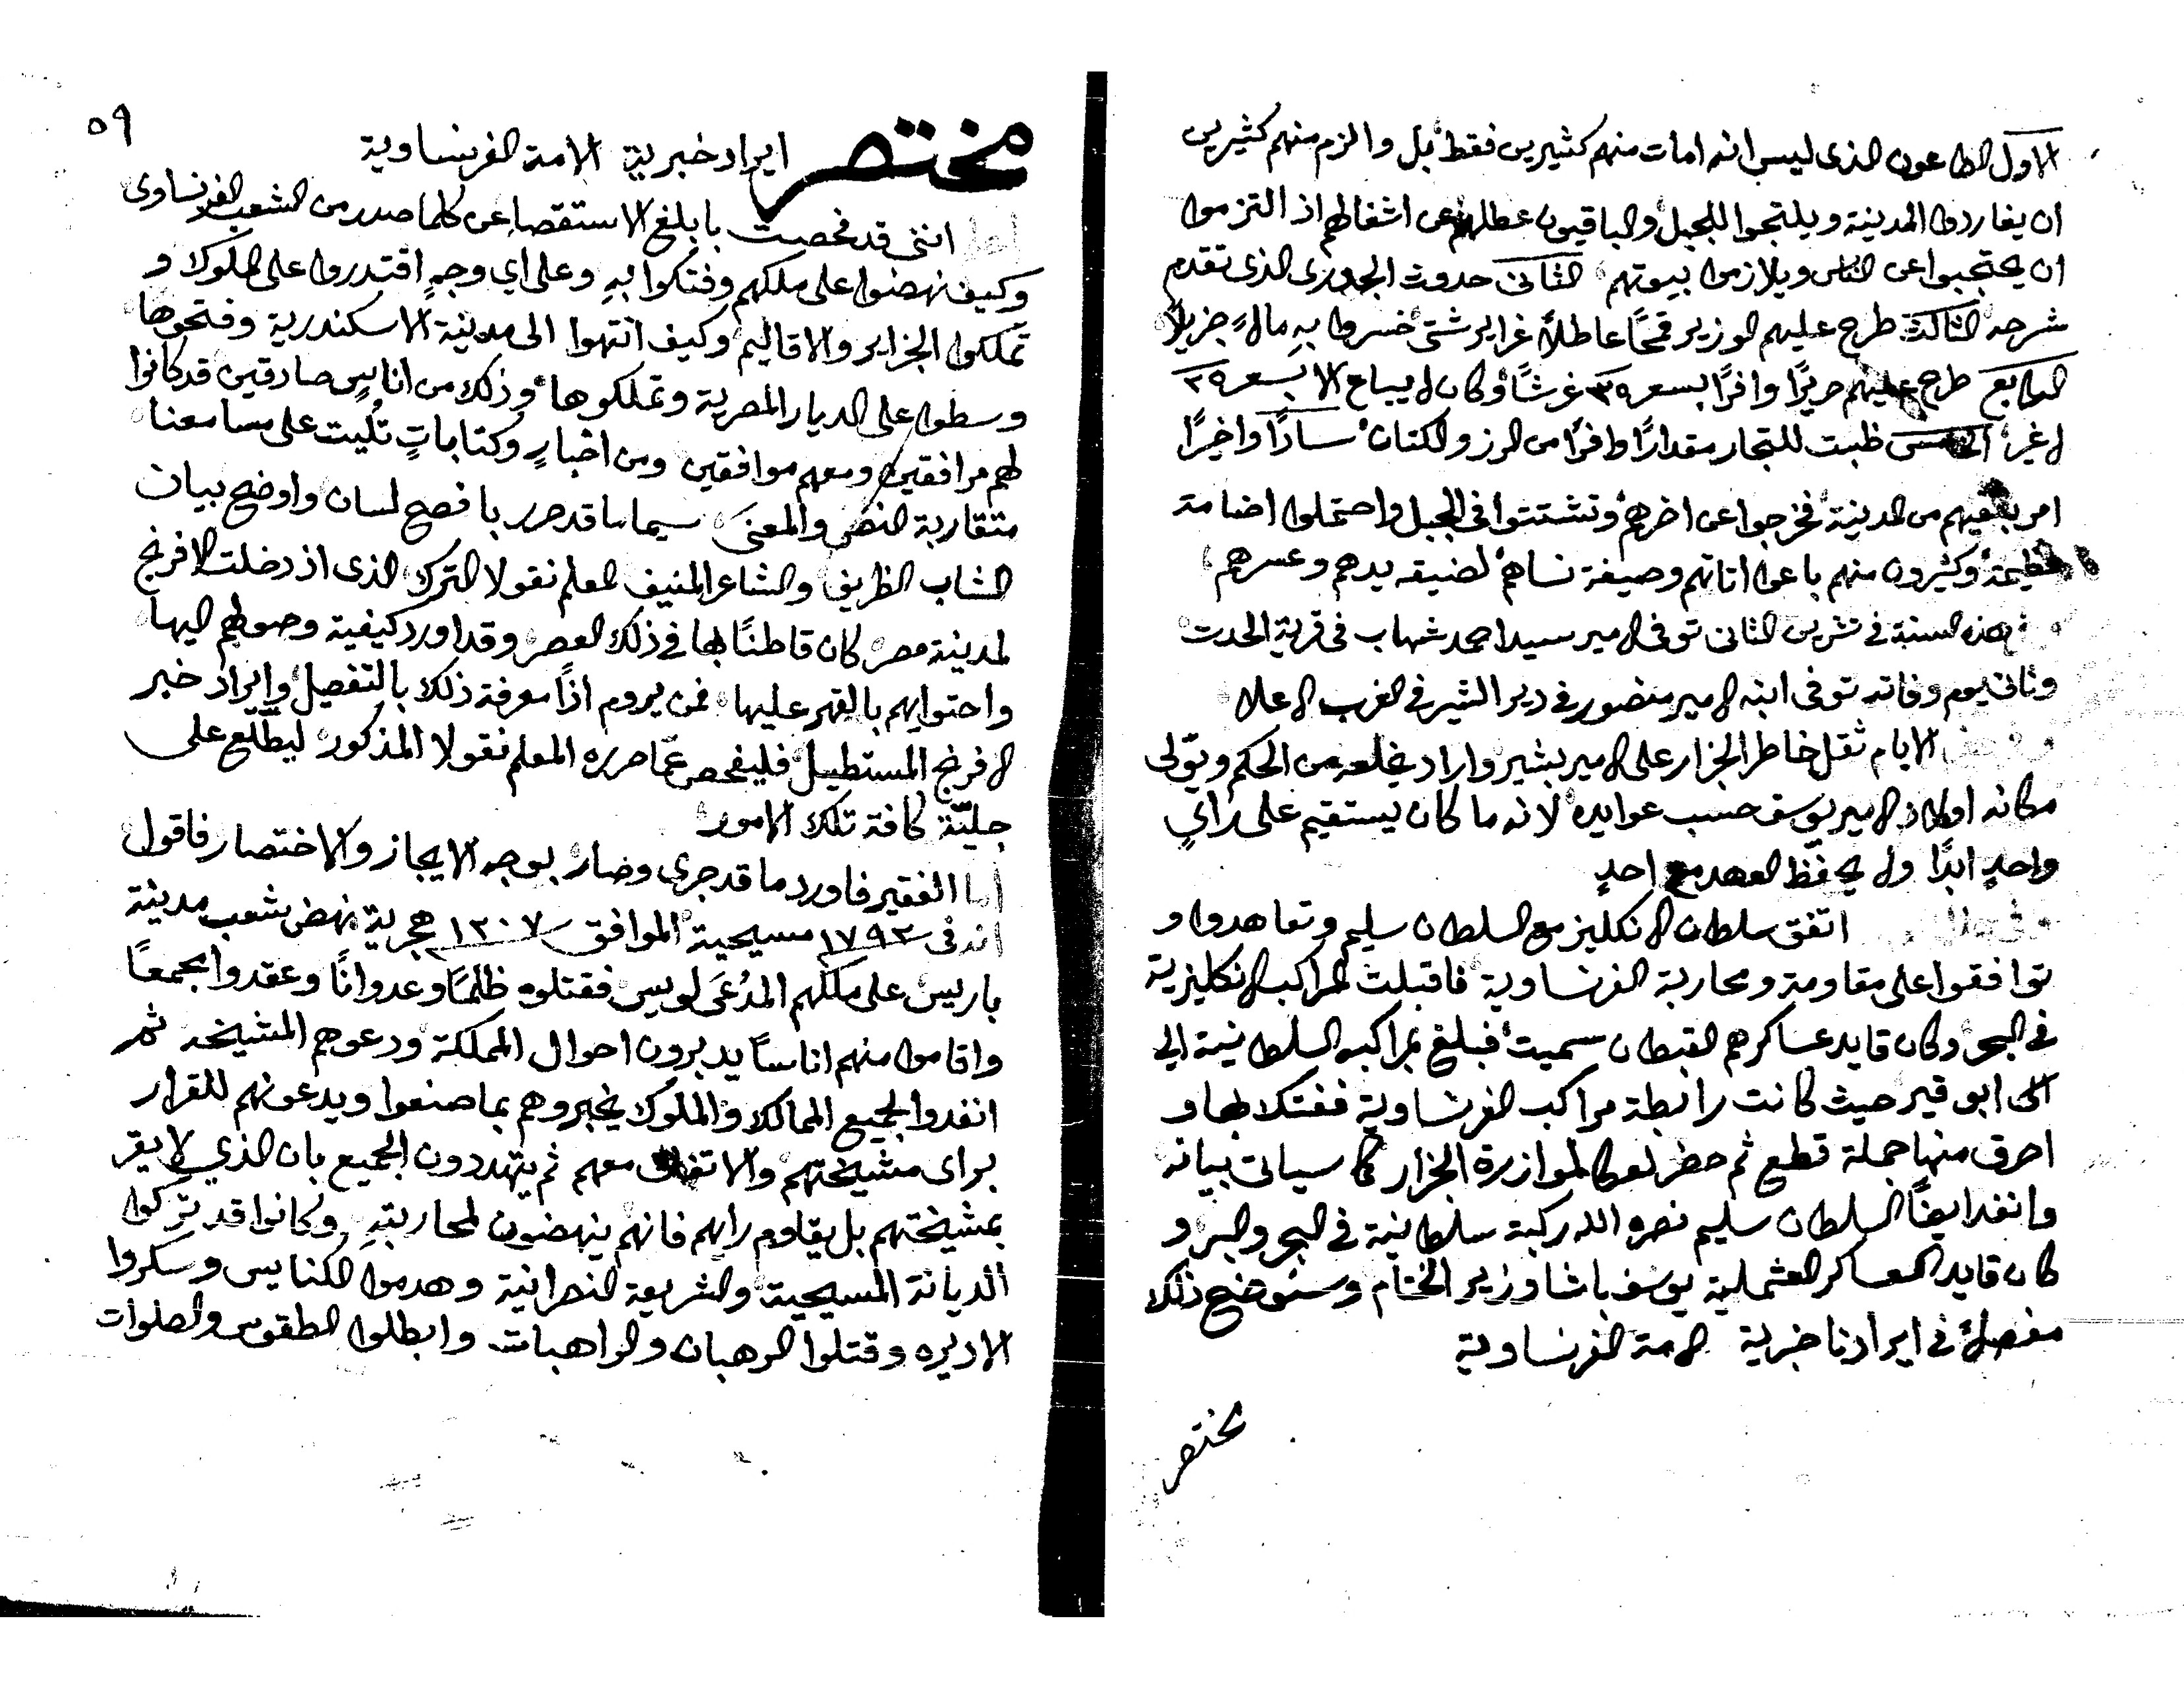 الاول الطاعون الذى ليس انه امات منهم كثيرين فقط بل والزم منهم كثيرين
ان يغاردوا المدينة ويلتجوا للجبل والباقيون عطلهم عن اشغالهم اذ التزموا
ان يحتجبوا عن الناس ويلازموا بيوتهم الثانى حدوث الجدرى الذى تقدم
شرحه الثالث طرح عليهم الوزير قمحًا عاطلاً غراير شتى خسروا به مالاً جزيلاً
الرابع طرح عليهم حريرًا وافرًا بسعر ٣٥ غرشًا وكان لا يباع الا بسعر ٢٥
لا غير الخامس ظبت للتجار مقدارًا وافرًا من الرز والكتان سادسًا واخيرًا
امر بنفيهم من المدينة فخرجوا عن اخرهم وتشتتوا فى الجبل واحتملوا اضامة
عظيمة وكثيرون منهم باعوا اثاثهم وصيغة نساهم لضيقه يدهم وعسرهم
هذه السنة فى تشرين الثانى توفى الامير سيد احمد شهاب فى قرية الحدث
وثانى يوم وفاته توفى ابنه الامير منصور فى دير الشير فى الغرب الاعلا
الايام ثقل خاطر الجزار على الامير بشير واراد يخلعه من الحكم ويولى
مكانه اولاد الامير يوسف حسب عوايده لانه ما كان يستقيم على راىٍ
واحدٍ ابدًا ولا يحفظ العهد مع احدٍ
اتفق سلطان الانكليز مع السلطان سليم وتعاهدوا و
توافقوا على مقاومة ومحاربة الفرنساوية فاقبلت المراكب الانكليزية
فى البحر وكان قايد عساكرهم القبطان سميت فبلغ بمراكبه السلطانية الى
الى ابو قير حيث كانت رابطة مراكب الفرنساوية ففتك بها و
احرق منها جملة قطع ثم حضر لعكا لموازرة الجزار كما سياتى بيانه
وانفد ايضًا السلطان سليم نصره الله ركبة سلطانية فى البحر والبر و
كان قايد العساكر العثملية يوسف باشا وزير الختام وسنوضح ذلك
مفصلاً فى ايرادنا خبرية الامة الفرنساوية
مختصر
٥٩
مختصر ايراد خبرية الامة الفرنساوية
اننى قد فحصت بابلغ الاستقصا عن كلما صدر من الشعب الفرنساوى
وكيف نهضوا على ملكهم وفتكوا به وعلى اي وجهٍ اقتدروا على الملوك و
تملكوا الجزاير والاقاليم وكيف انتهوا الى مدينة الاسكندرية وفتحوها
وسطوا على الديار المصرية وتملكوها وذلك من اناسٍ صادقين قد كانوا
لهم مرافقين ومعهم موافقين ومن اخبارٍ وكتاباتٍ تُليت على مسامعنا
متقاربة النص والمعنى سيما ما قد حرر بافصح لسان واوضح بيان
الشاب الظريف والشاعر المنيف المعلم نقولا الترك الذى اذ دخلت الافرنج
لمدينة مصر كان قاطنًا بها فى ذلك العصر وقد اورد كيفية وصولهم اليها
واحتوايهم بالقهر عليها فمن يروم اذًا معرفة ذلك بالتفصيل وايراد خبر
الافرنج المستطيل فليفحص عمّا حرره المعلم نقولا المذكور ليطّلع على
جليّة كافة تلك الامور
اما الفقير فاورد ما قد جرى وصار بوجه الايجاز والاختصار فاقول
انه فى ١٧٩٢ مسيحية الموافق ١٢٠٧ هجرية نهض شعب مدينة
باريس على ملكهم المدعى لويس فقتلوه ظلمًا وعدوانًا وعقدوا مجمعًا
واقاموا منهم اناسًا يدبرون احوال المملكة ودعوهم المشيخه ثم
انفدوا لجميع الممالك والملوك يخبروهم بما صنعوا ويدعونهم للقرار
براى مشيختهم والاتفاق معهم ثم يتهددون الجميع بان الذي لا يقر
بمشيختهم بل يقاوم رايهم فانهم ينهضون لمحاربتهِ وكانوا قد تركوا
الديانة المسيحية والشريعة النصرانية وهدموا الكنايس وسكروا
الاديره وقتلوا الرهبان والراهبات وابطلوا الطقوس والصلوات